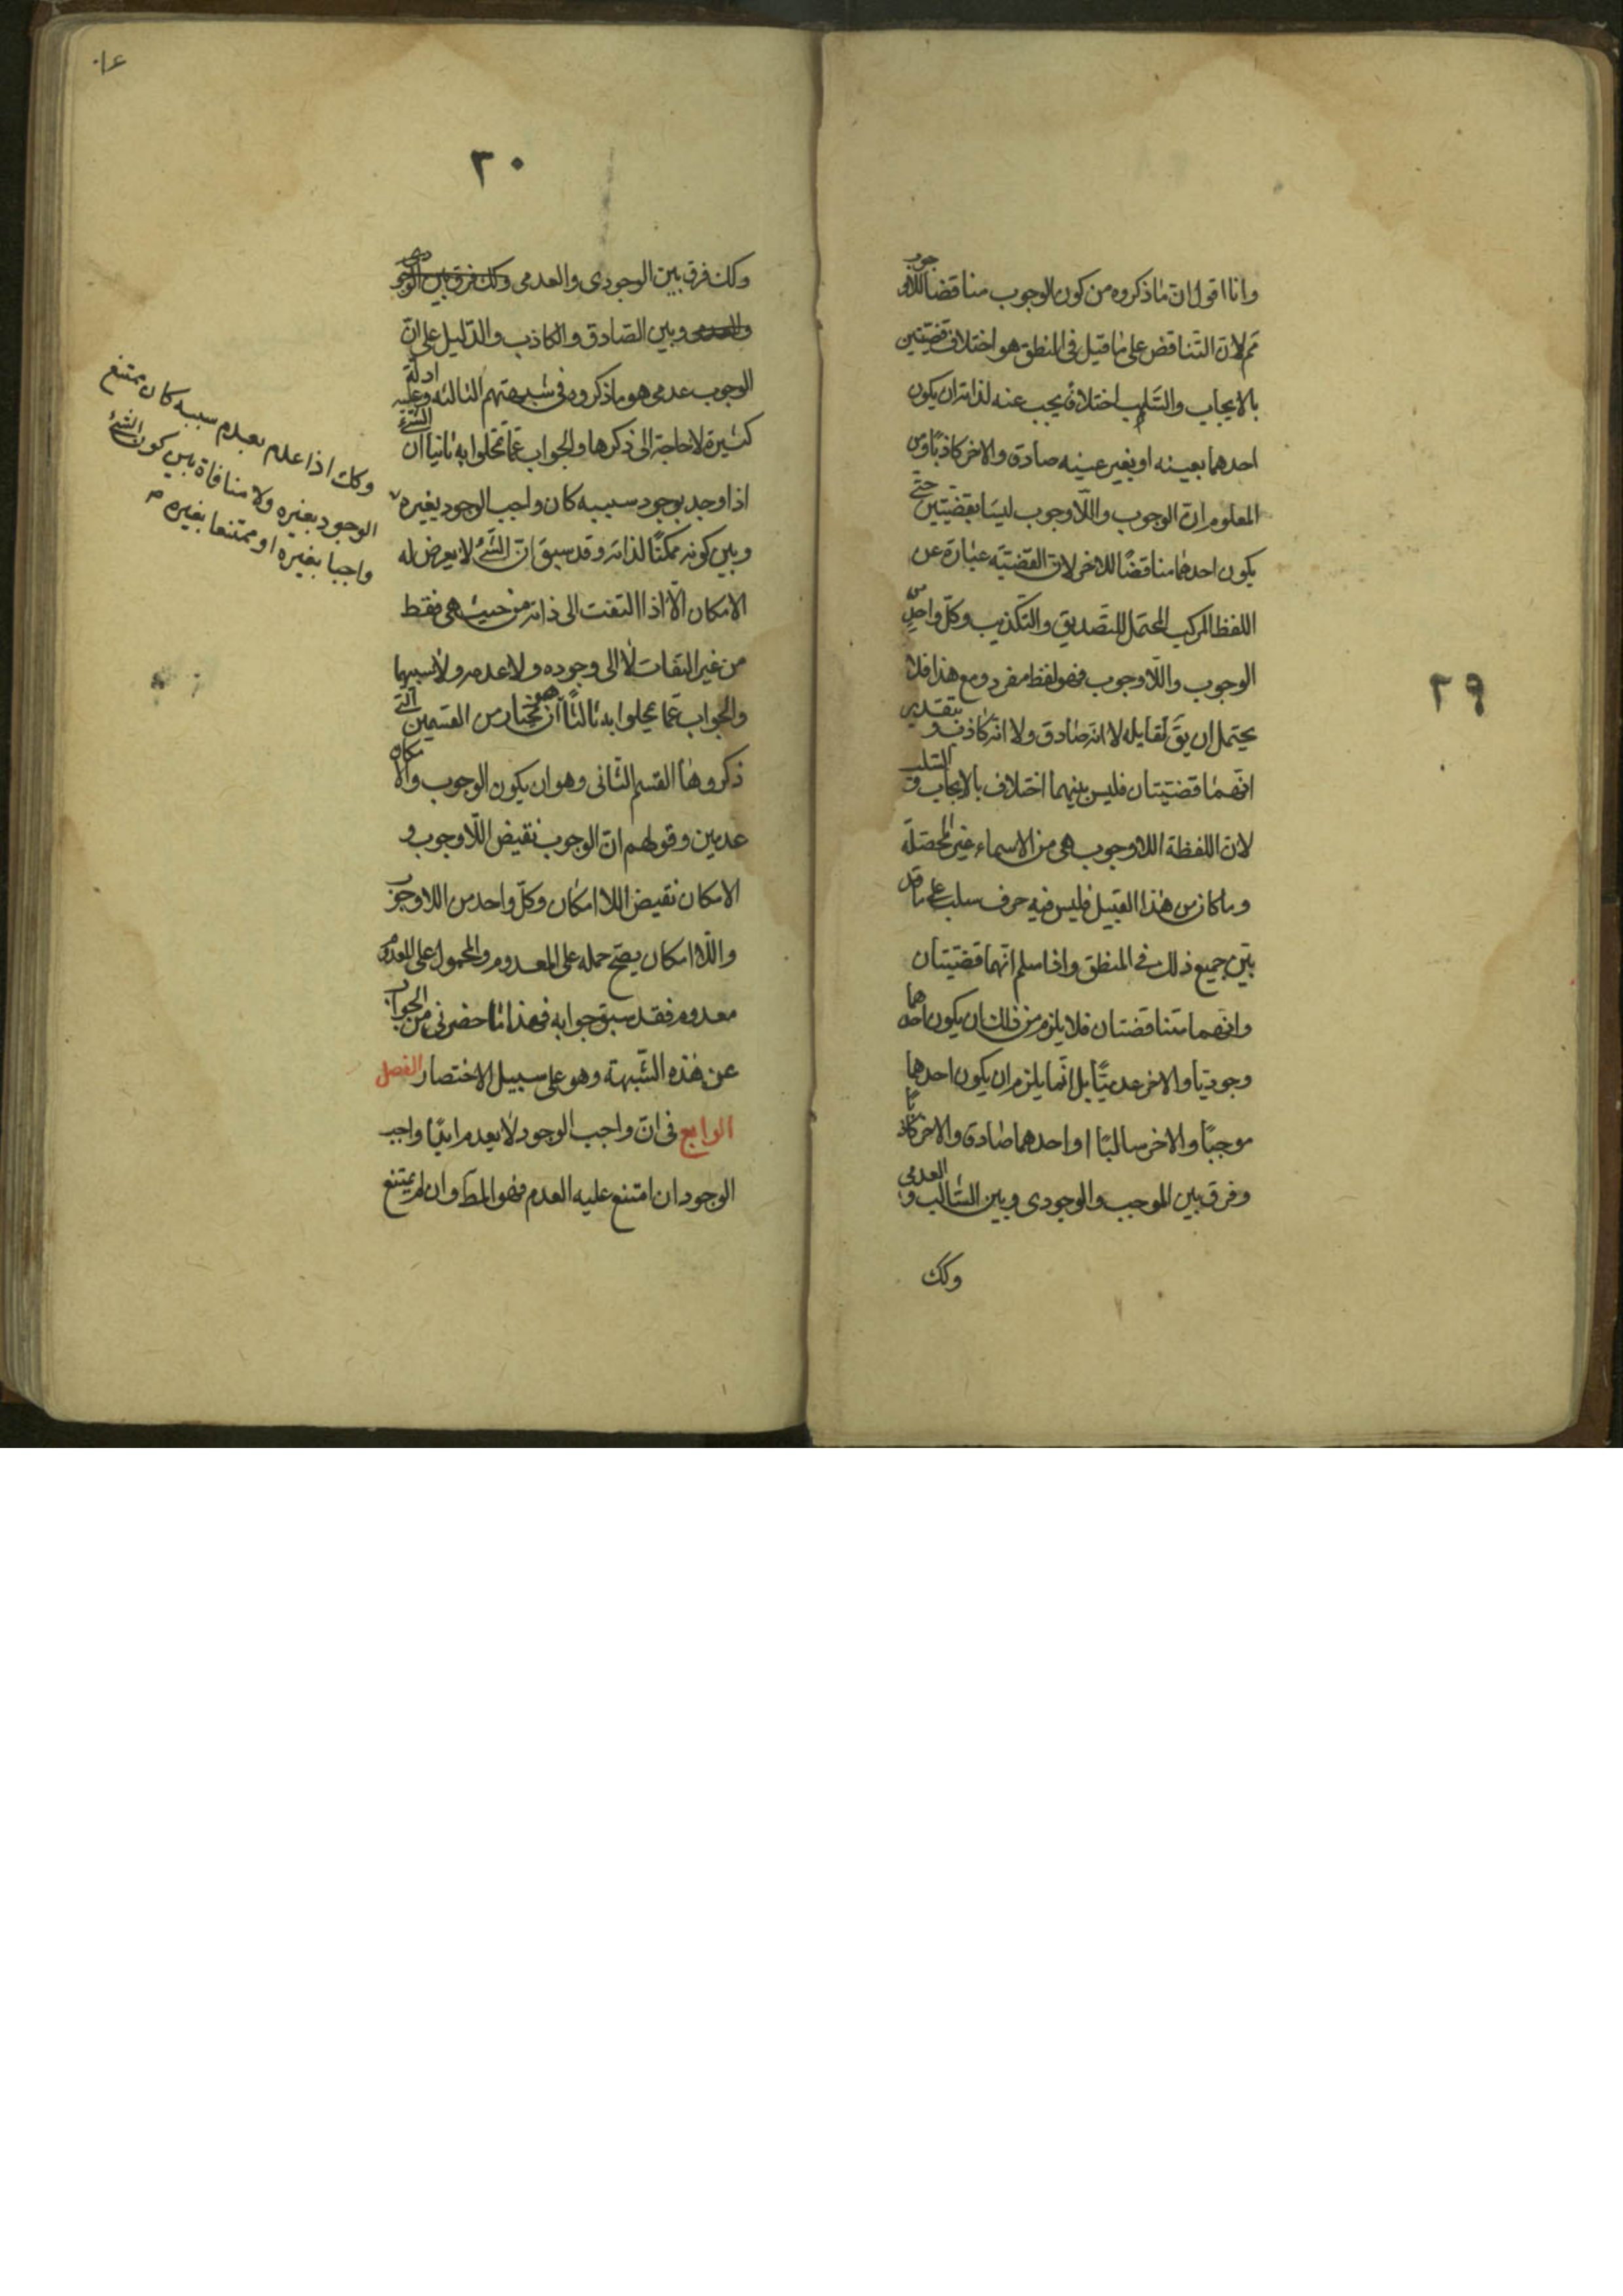 ٢٩
وانا اقول ان ما ذكروه من كون الوجوب مناقضا للاوجوب
مم لان التناقض على ما قيل فى المنطق هو اختلاف قضيتين
بالايجاب والسلب اختلافا يجب عنه لذاته ان يكون
احدهما بعينه او بغير عينه صادق والاخر كاذبا ومن
المعلوم ان الوجوب واللاوجوب ليسا بقضيتين حتى
يكون احدهما مناقضا للاخر لان القضية عبارة عن
اللفظ المركب المحتمل للتصديق والتكذيب وكل واحد من
الوجوب واللاوجوب فهو لفظ مفرد ومع هذا فلا
يحتمل ان يق لقايله لا انه صادق ولا انه كاذب وبتقدير
انهما قضيتان فليس بينهما اختلاف بالايجاب والسلب
لان اللفظة اللاوجوب هى من الاسماء غير المحصلة
وما كان من هذا القبيل فليس فيه حرف سلب على ما قد
بين جميع ذلك فى المنطق واذا سلم انهما قضيتان
وانهما متناقضتان فلا يلزم من ذلك ان يكون احدهما
وجوديا والاخر عدميا بل انما يلزم ان يكون احدهما
موجبا والاخر سالبا او احدهما صادق والاخر كاذبا
وفرق بين الموجب والوجودى وبين السالب والعدمى
وكك
٣٠
وكك فرق بين الوجودى والعدمى وكك فرق بين الوجودى
والعدمى وبين الصادق والكاذب والدليل على ان
الوجوب عدمى هو ما ذكروه فى شبهتهم الثالثه وعليه ادلة
كثيرة لا حاجة الى ذكرها والجواب عما تمحلوا به ثانيا ان الشئ
اذا وجد بوجود سببه كان واجب الوجود بغيره
وبين كونه ممكنا لذاته وقد سبق ان الشئ لا يعرض له
الامكان الا اذا التفت الى ذاته من حيث هى فقط
من غير التفات لا الى وجوده ولا عدمه ولا سببهما
والجواب عما تمحلوا به ثالثا هو ان نختار من القسمين التى
ذكروها القسم الثانى وهو ان يكون الوجوب والامكان
عدمين وقولهم ان الوجوب نقيض اللاوجوب و
الامكان نقيض اللاامكان وكل واحد من اللاوجوب
واللاامكان يصح حمله على المعدوم والمحمول على المعدوم
معدوم فقد سبق جوابه فهذا ما حضرنى من الجواب
عن هذه الشبهة وهو على سبيل الاختصار الفصل
الرابع فى ان واجب الوجود لا يعدم ابدا واجب
الوجود ان امتنع عليه العدم فهو المط وان لم يمتنع
وكك اذا علم بعدم سببه كان ممتنع
الوجود بغيره ولا منافاة بين كون الشئ
واجبا بغيره او ممتنعا بغيره م